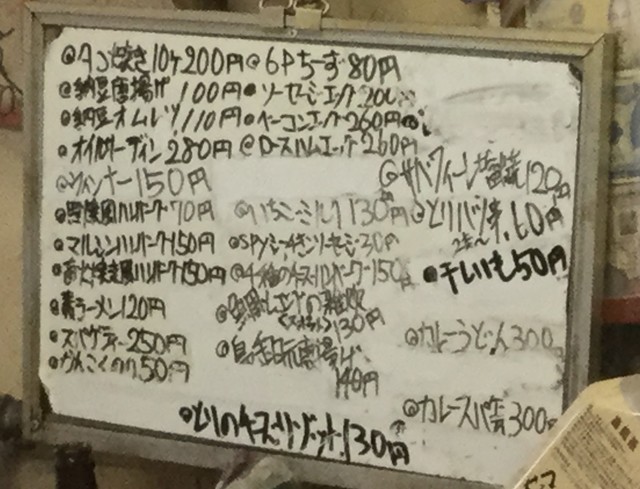 タコ焼き10ケ200円
納豆唐揚げ100円
納豆オムレツ110円
オイルサーディン280円
ウィンナー150円
照焼風ハンバーグ70円
マルシンハンバーグ150円
直火焼き風ハンバーグ150円
ラーメン120円
スパゲティー250円
かんこくのり50円
6Pちーず80円
ソーセージエッグ200円
ベーコンエッグ260円
ロースハムエッグ260円
いちごミルク130円
SPYシーチキンソーセージ30円
4種のチーズハンバーグ150円
雑炊
130円
唐揚げ
140円
とりのチーズリゾット130円
サバフィーレ 120円
とりハツ
干しいも50円
カレーうどん300円
カレースパ 300円